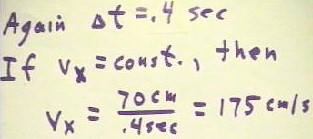 Again Δt = .4 sec
If Vx = const., then
Vx = 70 cm / .4 sec = 175 cm/s